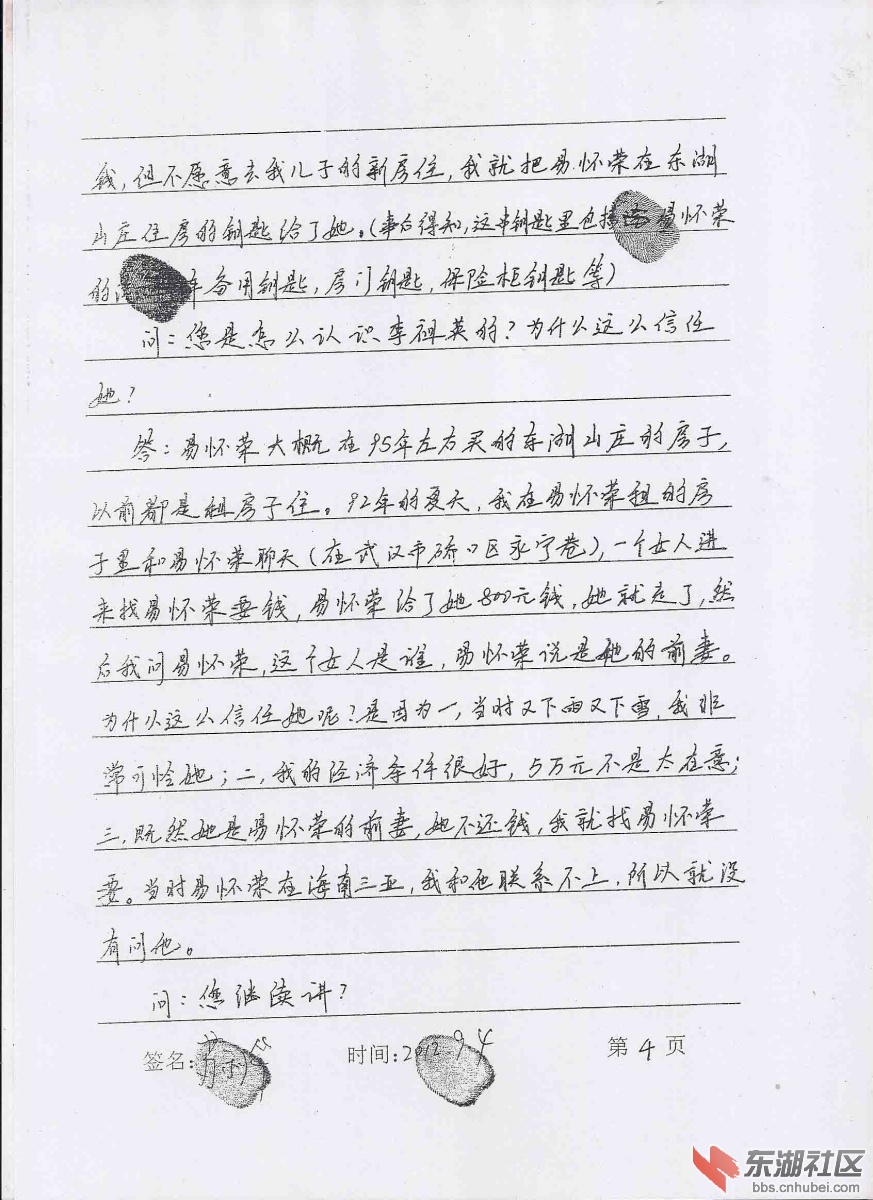 钱，但不愿意去我儿子的新房住，我就把易怀荣在东湖
山庄住房的钥匙给了她。（事后得知，这串钥匙里包括 易怀荣
的 车备用钥匙，房门钥匙，保险柜钥匙等）
问：您是怎么认识李祖英的？为什么这么信任
她？
答：易怀荣大概在95年左右买的东湖山庄的房子，
以前都是租房子住。92年的夏天，我在易怀荣租的房
子里和易怀荣聊天（在武汉市硚口区永宁巷），一个女人进
来找易怀荣要钱，易怀荣给了她800元钱，她就走了，然
后我问易怀荣，这个女人是谁，易怀荣说是她的前妻。
为什么这么信任她呢？是因为一，当时又下雨又下雪，我非
常可怜她；二，我的经济条件很好，5万元不是太在意；
三，既然她是易怀荣的前妻，她不还钱，我就找易怀荣
要。当时易怀荣在海南三亚，我和他联系不上，所以就没
有问他。
问：您继续讲？
签名： 时间：2012.9.4 第4页
东湖社区
bbs.cnhubei.com